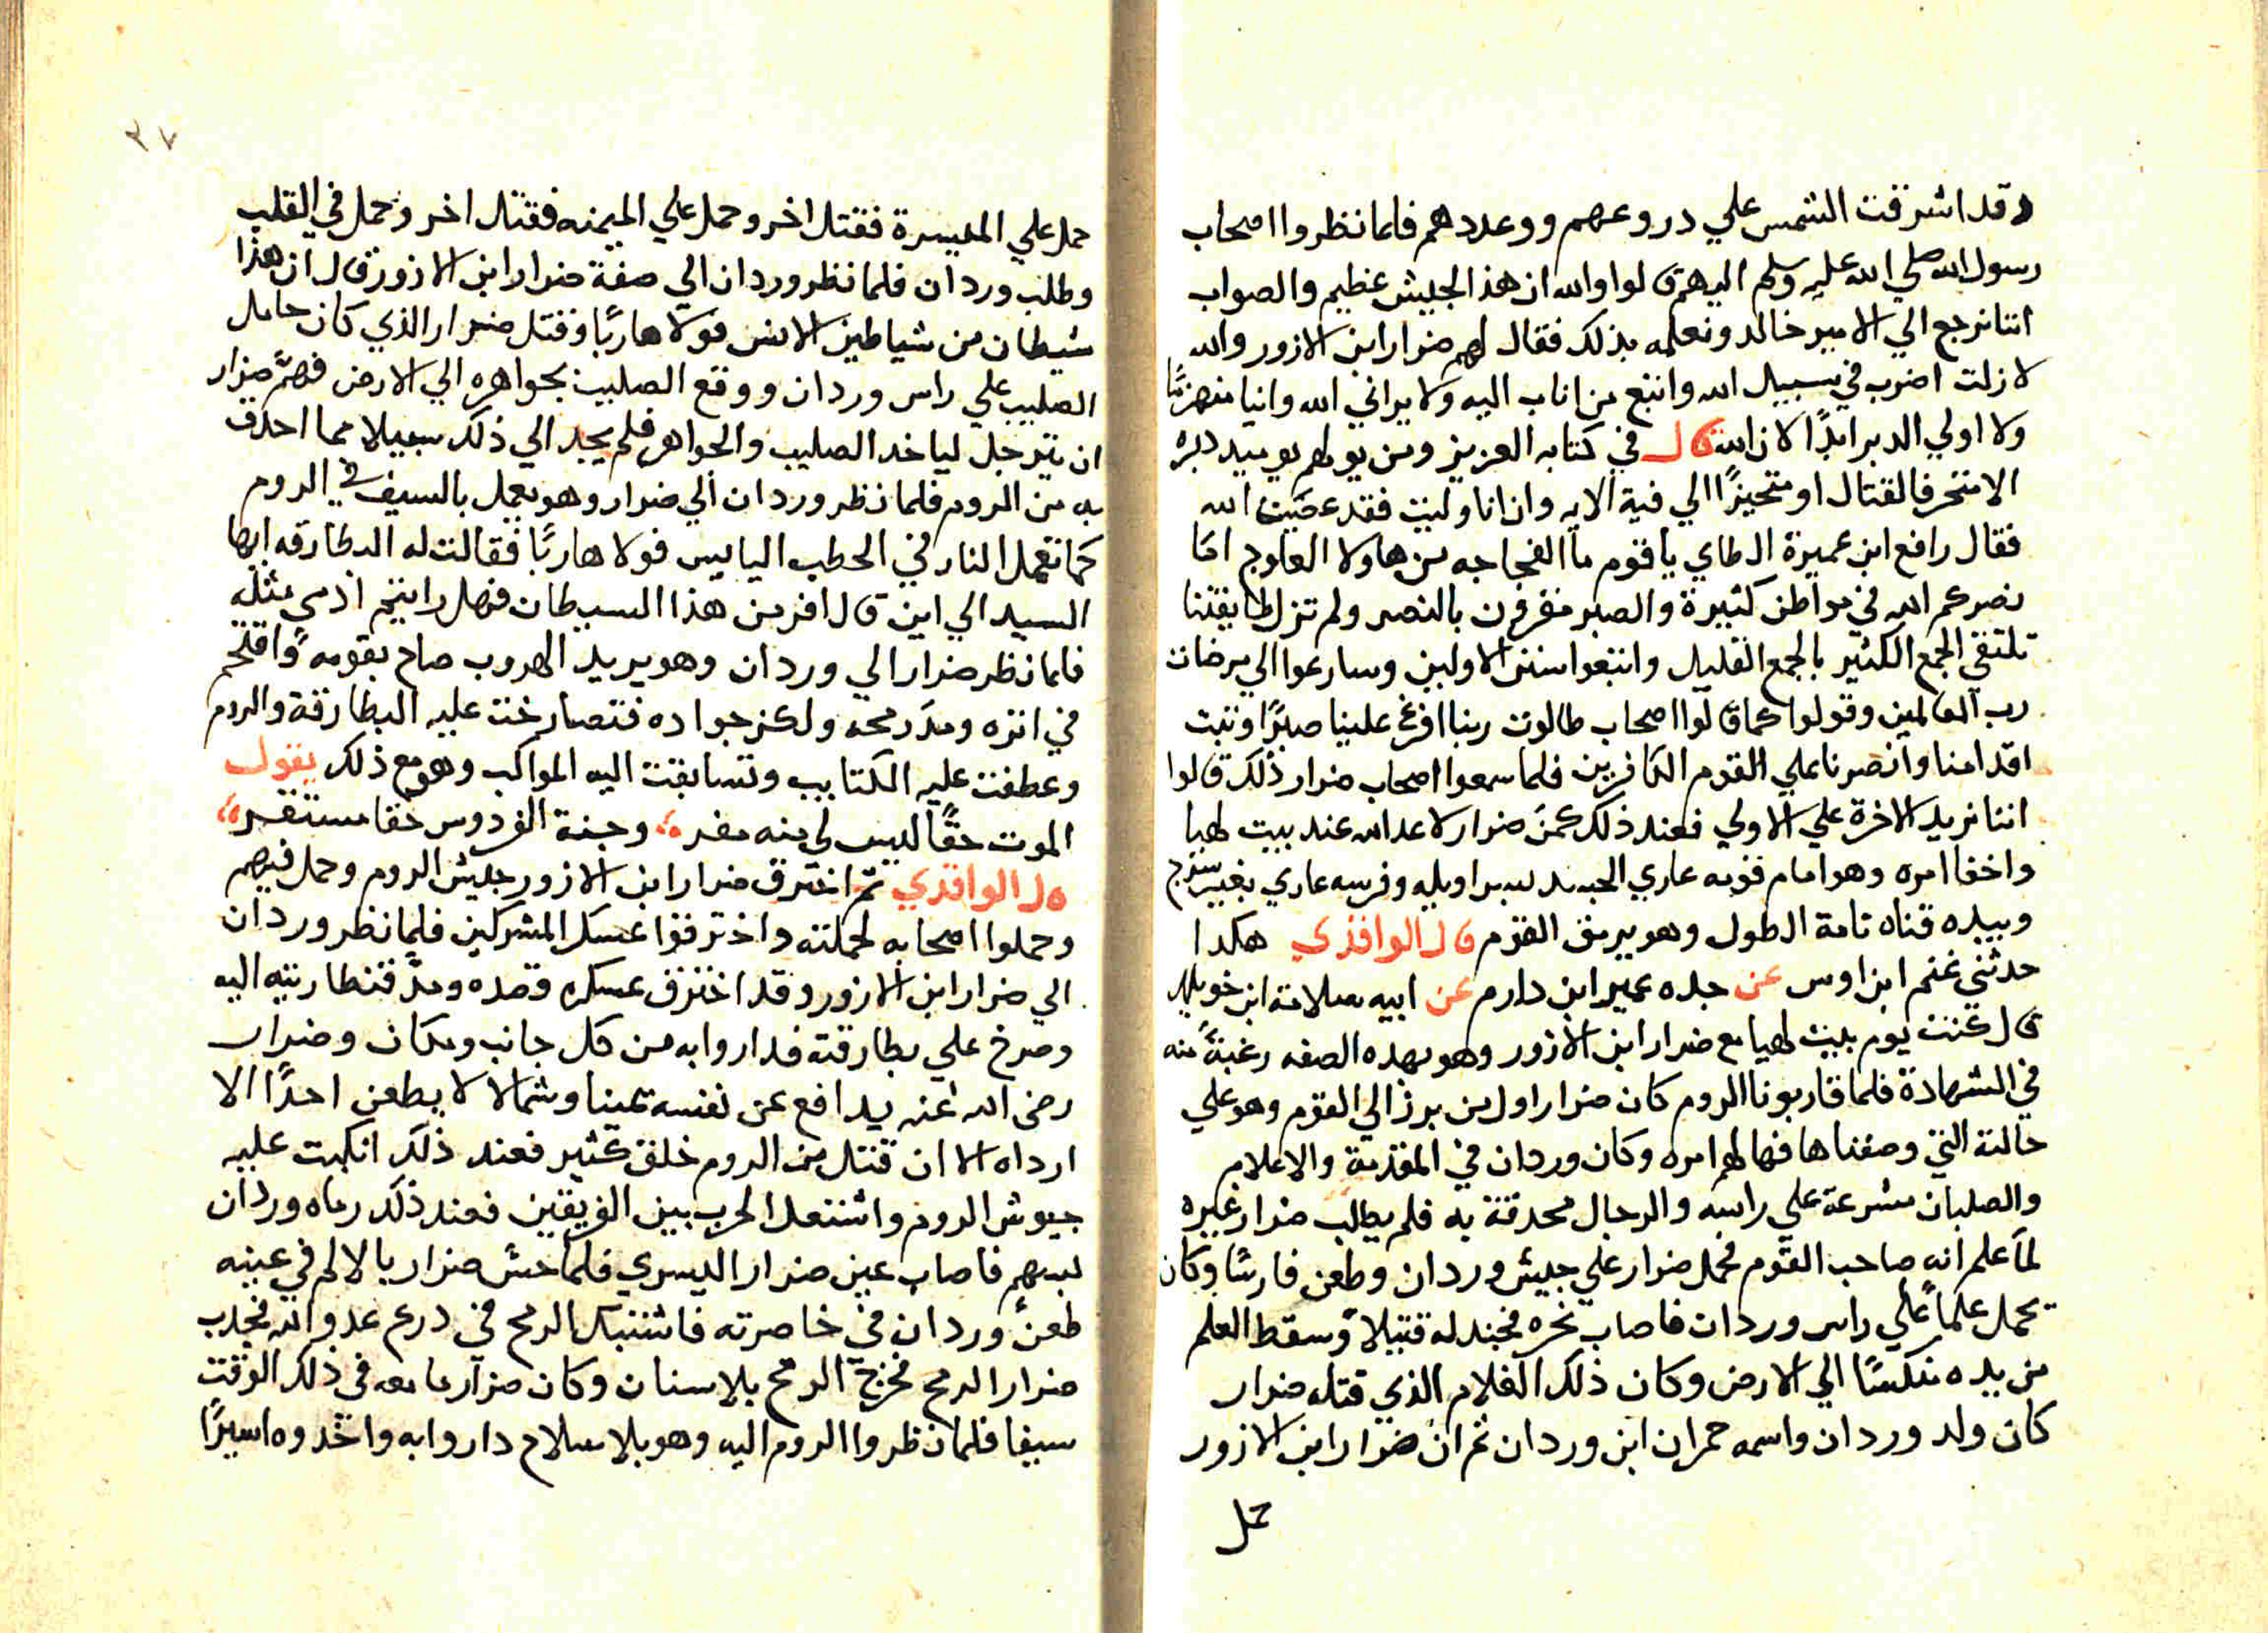 وقد اشرقت الشمس علي دروعهم ووعددهم فلما نظروا اصحاب
رسول الله صلي الله عليه وسلم اليهم قالوا والله ان هذ الجيش عظيم والصواب
اننا نرجع الي الامير خالد ونعلمه بذلك فقال لهم ضرار ابن الازور والله
لا زلت اضرب في سبيل الله واتبع من اناب اليه ولا يراني الله وانيا منهزمًا
ولا اولي الدبر ابدًا لان الله قال في كتابه العزيز ومن يولهم يوميد دبره
الا متحرفا لقتال او متحيزًا الي فية الايه وان انا وليت فقد عصيت الله
فقال رافع ابن عميرة الطاي يا قوم ما الفجاجه من هاولا العلوج اما
نصركم الله في مواطن كثيرة والصبر مقرون بالنصر ولم تزل طايفتنا
تلتقي الجمع الكثير بالجمع القليل واتبعوا سنن الاولين وسارعوا الي مرضات
رب العالمين وقولوا كما قالوا اصحاب طالوت ربنا افرغ علينا صبرًا وثبت
اقدامنا وانصرنا علي القوم الكافرين فلما سمعوا اصحاب ضرار ذلك قالوا
اننا نريد الاخرة علي الاولي فعند ذلك كمن ضرار لاعد الله عند بيت لهيا
واخفا امره وهو امام قومه عاري الجسد بسراويله وفرسه عاري بغير سرج
وبيده قناه تامة الطول وهو يرمق القوم قال الواقدي هكدا
حدثني غنم ابن اوس عن جده عمير ابن دارم عن ابيه سلامة ابن خويلد
قال كنت يوم بيت لهيا مع ضرار ابن الازور وهو بهده الصفه رغبةً منه
في الشهادة فلما قاربونا الروم كان ضرار اول من برز الي القوم وهو علي
حالته التي وصفناها فهالهم امره وكان وردان في المقدمة والاعلام
والصلبان مشرعة علي راسه والرجال محدقة به فلم يطلب ضرار غيره
لما علم انه صاحب القوم فحمل ضرار علي جيش وردان وطعن فارسًا وكان
يحمل علمًا علي راس وردان فاصاب نحره فجندله قتيلًا وسقط العلم
من يده منكسًا الي الارض وكان ذلك الغلام الذي قتله ضرار
كان ولد وردان واسمه حمران ابن وردان ثم ان ضرار ابن الازور
حمل
٣٧
حمل علي الميسرة فقتل اخر وحمل علي الميمنه فقتل اخر وحمل في القلب
وطلب وردان فلما نظر وردان الي صفة ضرار ابن الازور قال ان هذا
شيطان من شياطين الانس فولا هاربًا وقتل ضرار الذي كان حامل
الصليب علي راس وردان ووقع الصليب بجواهره الي الارض فهمَّ ضرار
ان يترجل لياخد الصليب والجواهر فلم يجد الي ذلك سبيلا مما احدق
به من الروم فلما نظر وردان الي ضرار وهو يعمل بالسيف في الروم
كما تعمل النار في الحطب اليابس فولا هاربًا فقالت له البطارقه ايها
السيد الي اين قال افر من هذا الشيطان فهل رايتم ادمي مثله
فلما نظر ضرار الي وردان وهو يريد الهروب صاح بقومه واقتحم
في اثره ومدَ رمحه ولكز جواده فتصارخت عليه البطارقة والروم
وعطفت عليه الكتايب وتسابقت اليه المواكب وهو مع ذلك يقول
الموت حقًا ليس لي منه مفره وجنة الفردوس حقا مستقره
قال الواقدي ثم اخترق ضرار ابن الازور جيش الروم وحمل فيهم
وحملوا اصحابه لحملته واخترقوا عسكر المشركين فلما نظر وردان
الي ضرار ابن الازور وقد اخترق عسكره قصده ومدَّ قنطاريته اليه
وصرخ علي بطارقته فداروا به من كل جانب ومكان وضرار
رضي الله عنه يدافع عن نفسه يمينا وشمالا لا يطعن احدًا الا
ارداه الا ان قتل من الروم خلق كثير فعند ذلك انكبت عليه
جيوش الروم واشتعل الحرب بين الفريقين فعند ذلك رماه وردان
بسهم فاصاب عين ضرار اليسري فلما حسَّ ضرار بالالم في عينه
طعن وردان في خاصرته فاشتبك الرمح في درع عدو الله فجدب
ضرار الرمح فخرج الرمح بلا سنان وكان ضرار ما معه في ذلك الوقت
سيفا فلما نظروا الروم اليه وهو بلا سلاح داروا به واخدوه اسيرًا